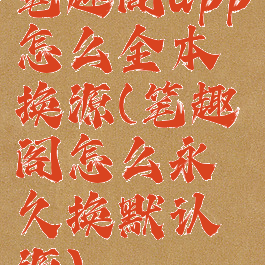 笔趣阁app
怎么全本
换源(笔趣
阁怎么永
久换默认
源)